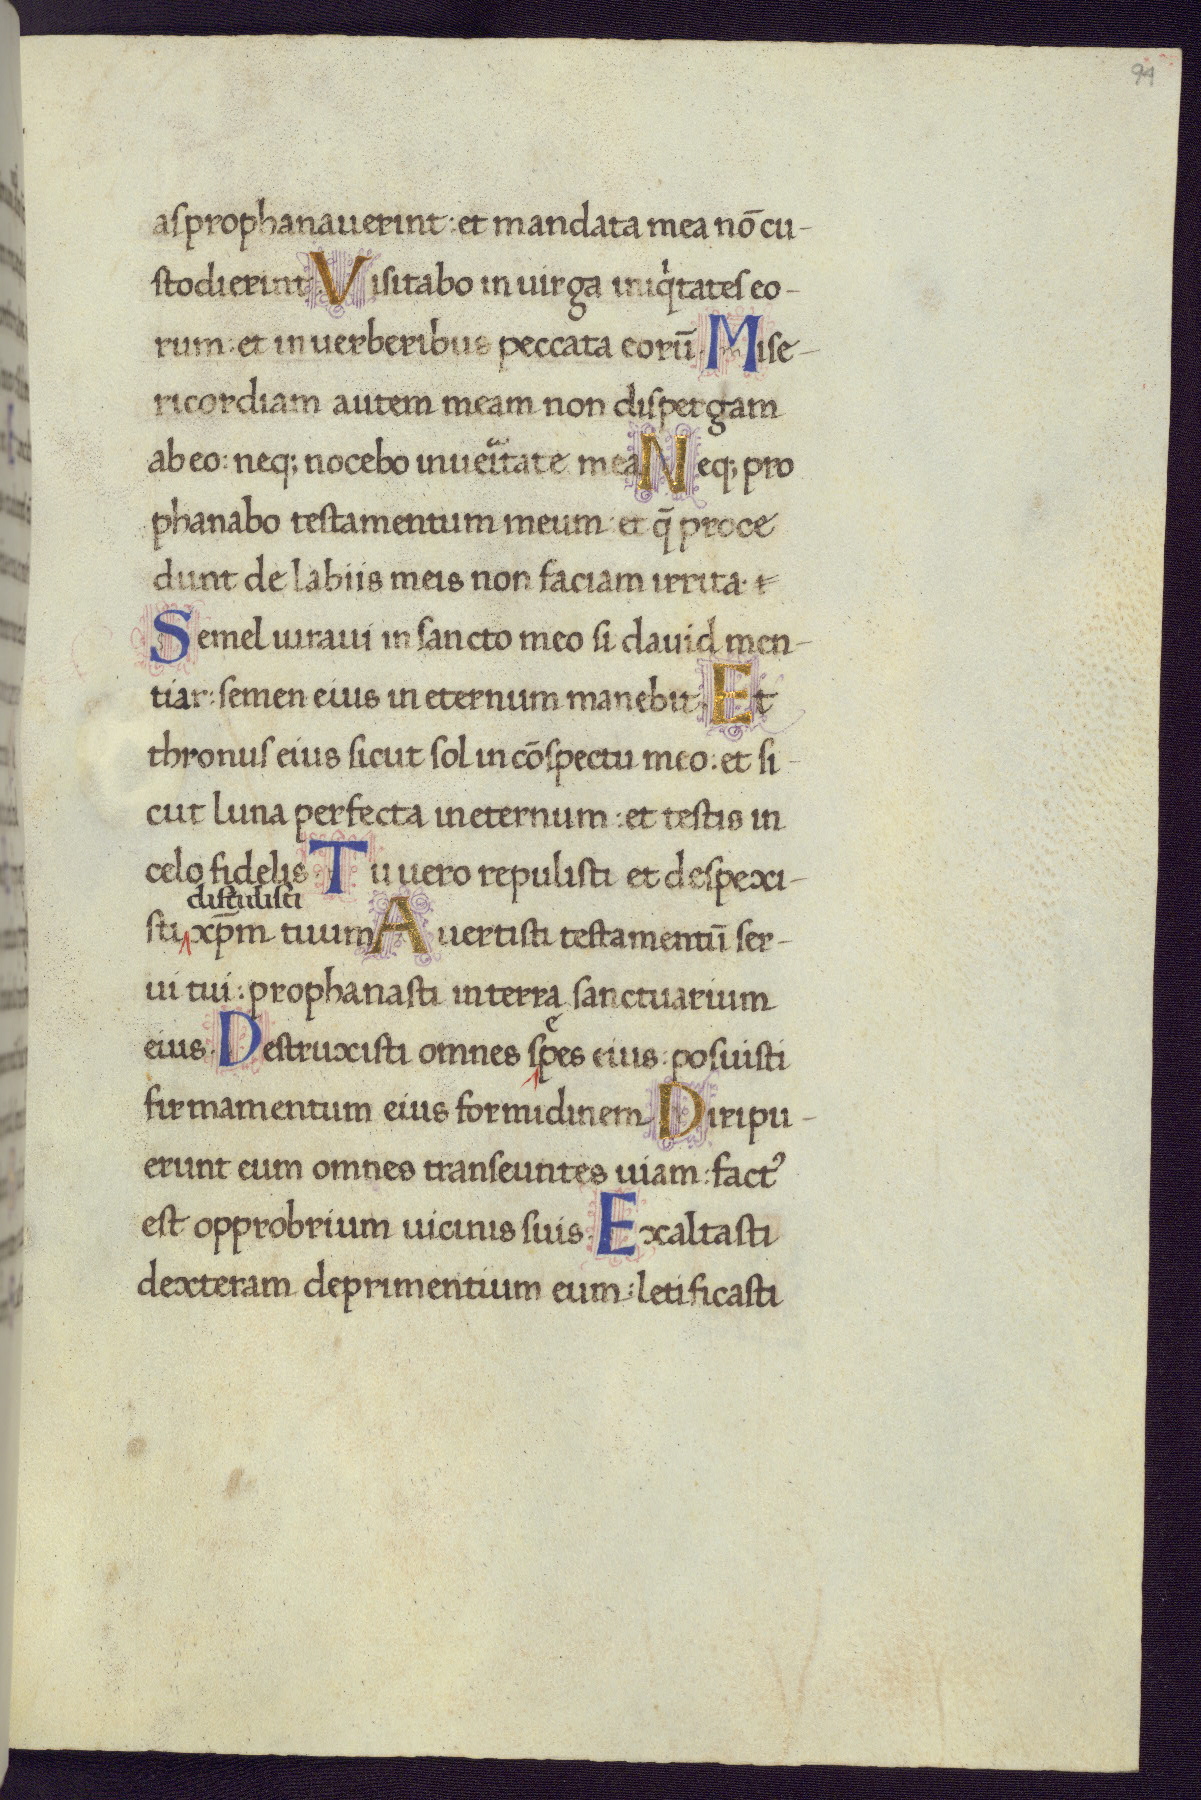 94
as prophanauerint : et mandata mea nō cu-
stodierint Visitabo in uirga iniqͥtates eo-
rum : et in uerberibus peccata eorū. Mise-
ricordiam autem meam non dispergam
ab eo : neq; nocebo in ueͥtate mea Neq; pro
phanabo testamentum meum : et q̄ proce
dunt de labiis meis non faciam irrita.
Semel iuraui in sancto meo si dauid men-
tiar : semen eius in eternum manebit. Et
thronus eius sicut sol in cōspectu meo : et si-
cut luna perfecta in eternum : et testis in
celo fidelis. Tu uero repulisti et despexi-
distulisti
sti xp̄m tuum Auertisti testamentū ser-
ui tui : prophanasti in terra sanctuarium
eius. Destruxisti omnes spes eius : posuisti
firmamentum eius formidinem Diripu-
erunt eum omnes transeuntes uiam : factꝰ
est opprobrium uicinis suis. Exaltasti
dexteram deprimentium eum : letificasti